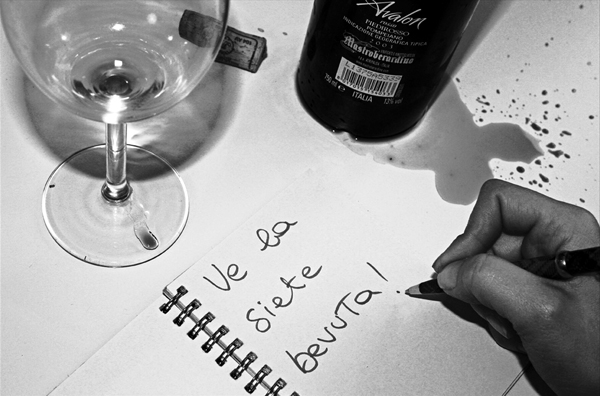 Avalon
PIEDIROSSO
POMPEIANO
INDICAZIONE GEOGRAFICA TIPICA
2001
Mastroberardino
750 ml e
ITALIA
12% vol
Ve la
siete
bevuta!